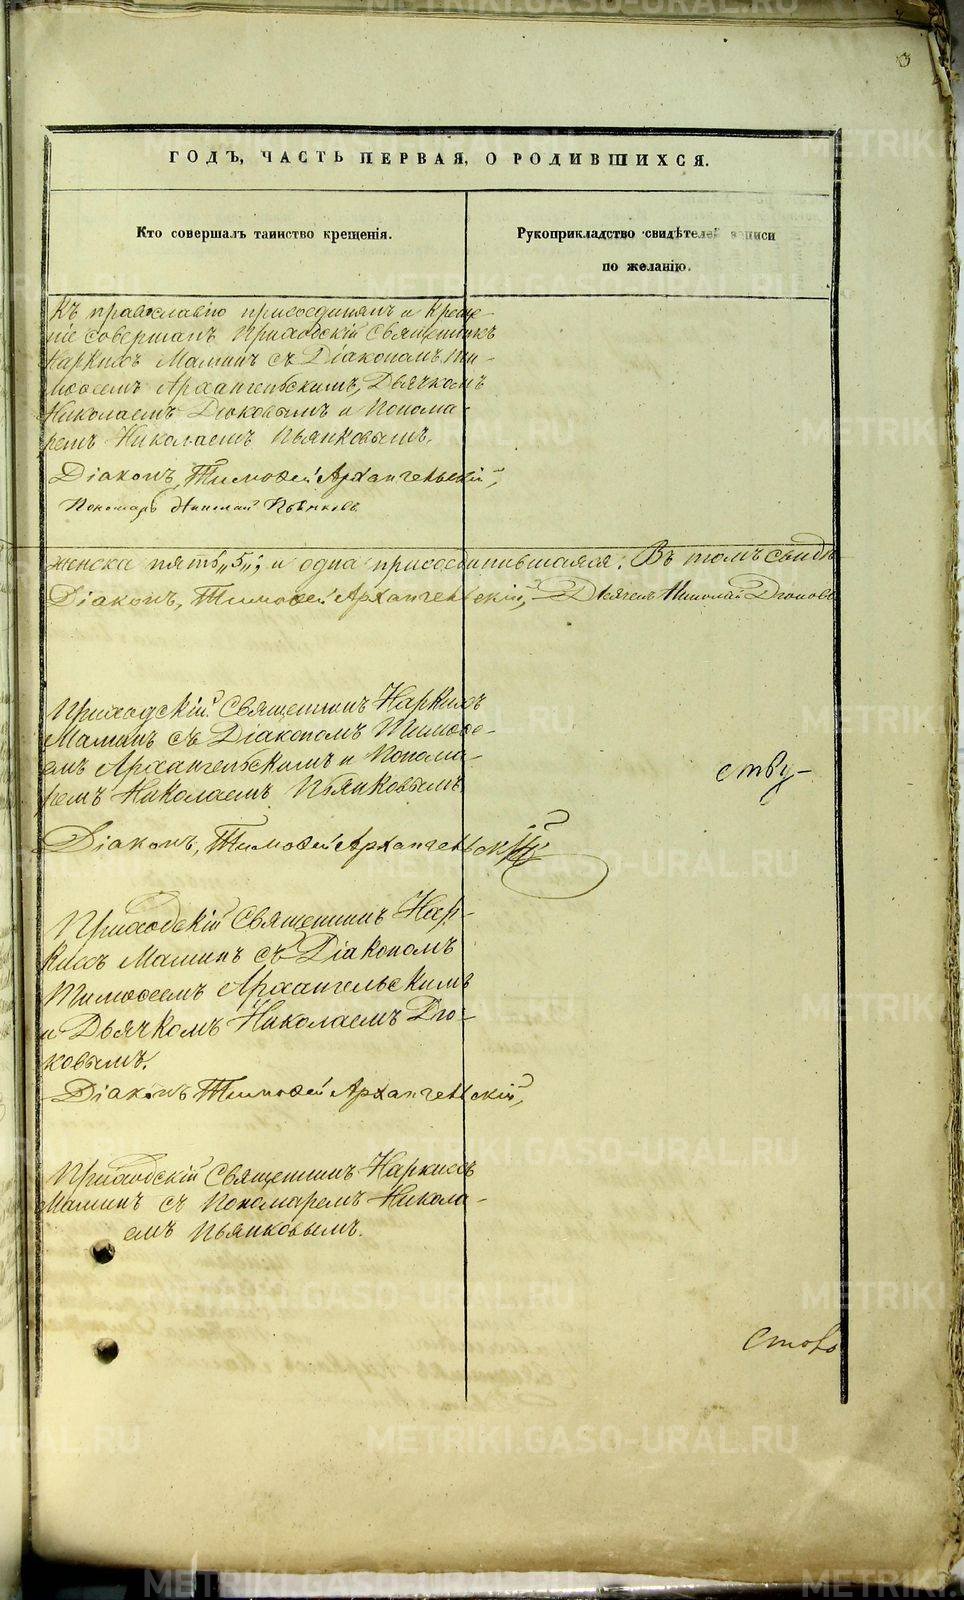 3
ГОДЪ, ЧАСТЬ ПЕРВАЯ, О РОДИВШИХСЯ.
Кто совершалъ таинство крещенія.
Рукоприкладство свидѣтелей записи
по желанію.
Къ православію присоединялъ и Креще-
ніе совершалъ Приходскій Священникъ
Наркисъ Маминъ съ Діакономъ Ти-
моѳеемъ Архангельскимъ, Дьячкомъ
Николаемъ Дюковымъ и Понома-
ремъ Николаемъ Пьянковымъ.
Діаконъ, Тимоѳей Архангельскій,
Пономарь Николай Пьянковъ
женска пять „5„, и одна присоединившаяся. Въ томъ свидѣ
Діаконъ, Тимоѳей Архангельскій, Дьячекъ Николай Дюковъ
Приходскій Священникъ Наркисъ
Маминъ съ Діакономъ Тимоѳе-
емъ Архангельскимъ и Понома-
ремъ Николаемъ Пьянковымъ
ству-
Діаконъ, Тимоѳей Архангельскій
Приходскій Священникъ Нар-
кисъ Маминъ съ Діакономъ
Тимоѳеемъ Архангельскимъ
и Дьячкомъ Николаемъ Дю-
ковымъ.
Діаконъ Тимоѳей Архангельскій,
Приходскій Священникъ Наркисъ
Маминъ съ Пономаремъ Никола-
емъ Пьянковымъ.
METRIKI.GASO-URAL.RU